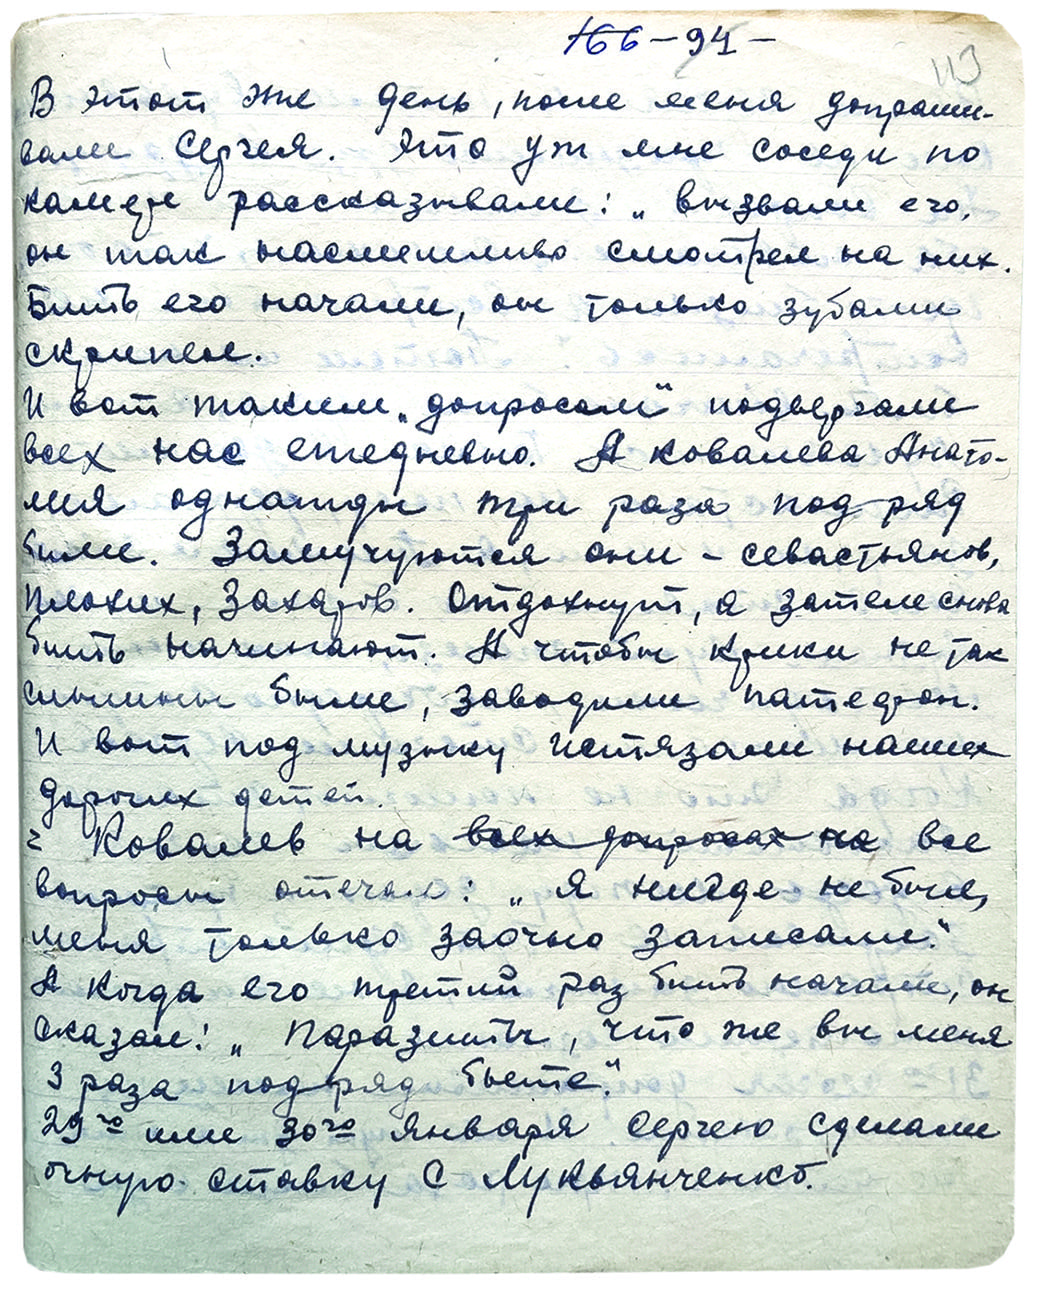 166 - 94 -
113
В этот же день, после меня допраши-
вали Сергея. Это уж мне соседи по
камере рассказывали: „вызвали его,
он так насмешливо смотрел на них.
Бить его начали, он только зубами
скрипел.
И вот таким „допросам" подвергали
всех нас ежедневно. А Ковалева Анато-
лия однажды три раза под ряд
били. Замучуются они - севастьянов,
Плохих, Захаров. Отдохнут, а затем снова
бить начинают. А чтобы крики не так
слышны были, заводили патефон.
И вот под музыку истязали наших
дорогих детей.
= Ковалев на всех допросах на все
вопросы отечал: „я нигде не был,
меня только заочно записали."
А когда его третий раз бить начали, он
сказал: „Паразиты, что же вы меня
3 раза под ряд бьете".
29го или 30го января Сергею сделали
очную ставку с Лукьянченко.